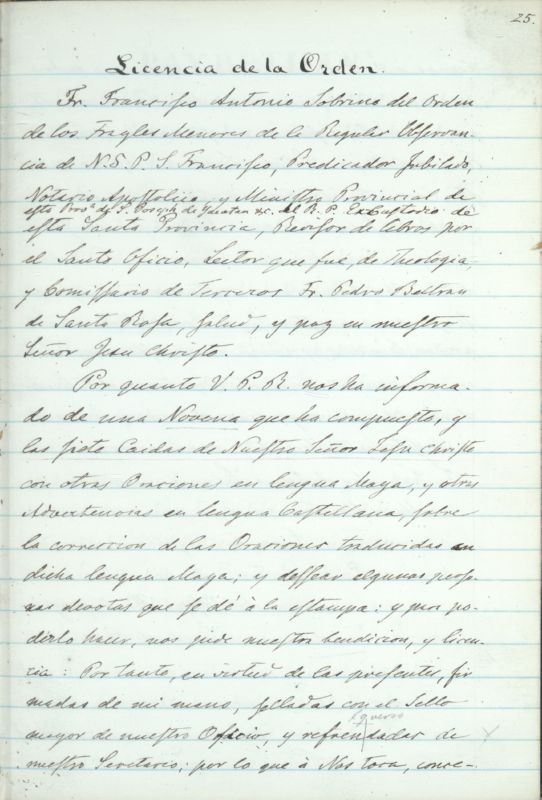 25.
Licencia de la Orden.
Fr. Francisco Antonio Sobrino del Orden
de los Frayles Menores de la Regular Observan-
cia de N. S. P. S. Francisco, Predicador Jubilado,
Notario Apostolico, y Ministro Provincial de
esta Prova. de S. Joseph de Yucatan &c. Al R. P. ExCustodio de
esta Santa Provincia, Revisor de libros por
el Santo Oficio, Lector que fue, de Theologia,
y Comissario de Terceros Fr. Pedro Beltran
de Santa Rosa, Salud, y paz en nuestro
Señor Jesu Christo.
Por quanto V. P. R. nos ha informa-
do de una Novena que ha compuesto, y
las siete Caidas de Nuestro Señor Jesu Christo
con otras Oraciones en lengua Maya, y otras
Advertencias en lengua Castellana, sobre
la correccion de las Oraciones traducidas en
dicha lengua Maya; y dessear algunas perso-
nas devotas que se dè à la estampa: y para po-
derlo hacer, nos pide nuestra bendicion, y licen-
cia: Por tanto, en virtud de las presentes, fir
madas de mi mano, selladas con el Sello
mayor de nuestro Oficio, y refrendadas de
nuestro Secretario; por lo que à Nos toca, conce-